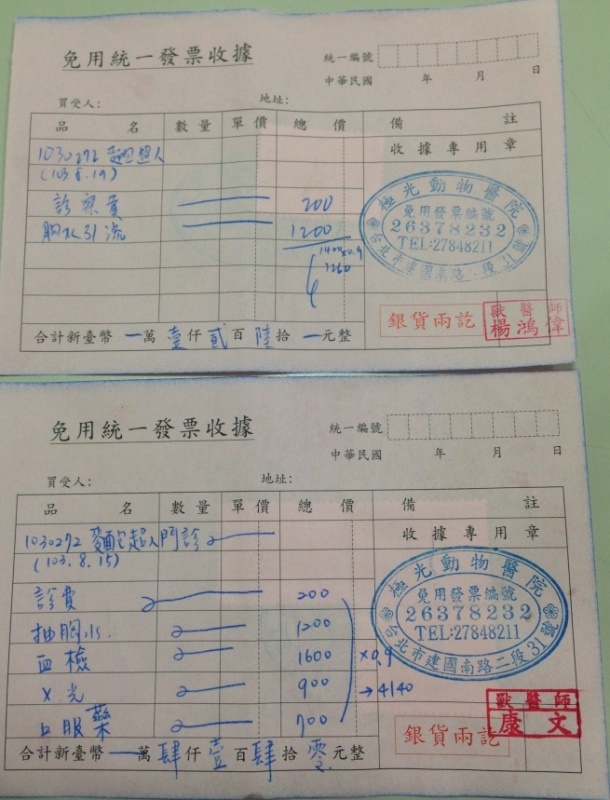 免用統一發票收據
統一編號
中華民國 年 月 日
買受人: 地址:
品 名 數量 單價 總 價 備 註
1030292 麵包超人 收據專用章
(103.8.19)
診察費 200
胸水引流 1200
1400x0.9
1260
極光動物醫院
免用發票編號
26378232
TEL:27848211
台北市建國南路二段31號
銀貨兩訖
獸醫師
楊鴻偉
合計新臺幣 一萬壹仟貳百陸拾一元整
免用統一發票收據
統一編號
中華民國 年 月 日
買受人: 地址:
品 名 數量 單價 總 價 備 註
1030292 麵包超人門診 收據專用章
(103.8.15)
診費 200
抽胸水. 1200
血檢 1600 x0.9
X光 900 →4140
口服藥 700
極光動物醫院
免用發票編號
26378232
TEL:27848211
台北市建國南路二段31號
銀貨兩訖
獸醫師
康文
合計新臺幣 一萬肆仟壹百肆拾零元整